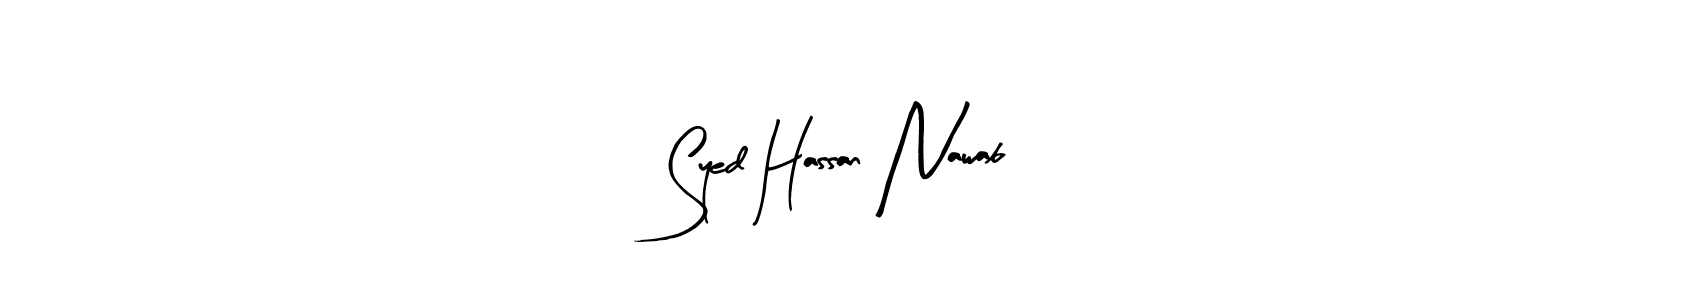 Syed Hassan Nawab